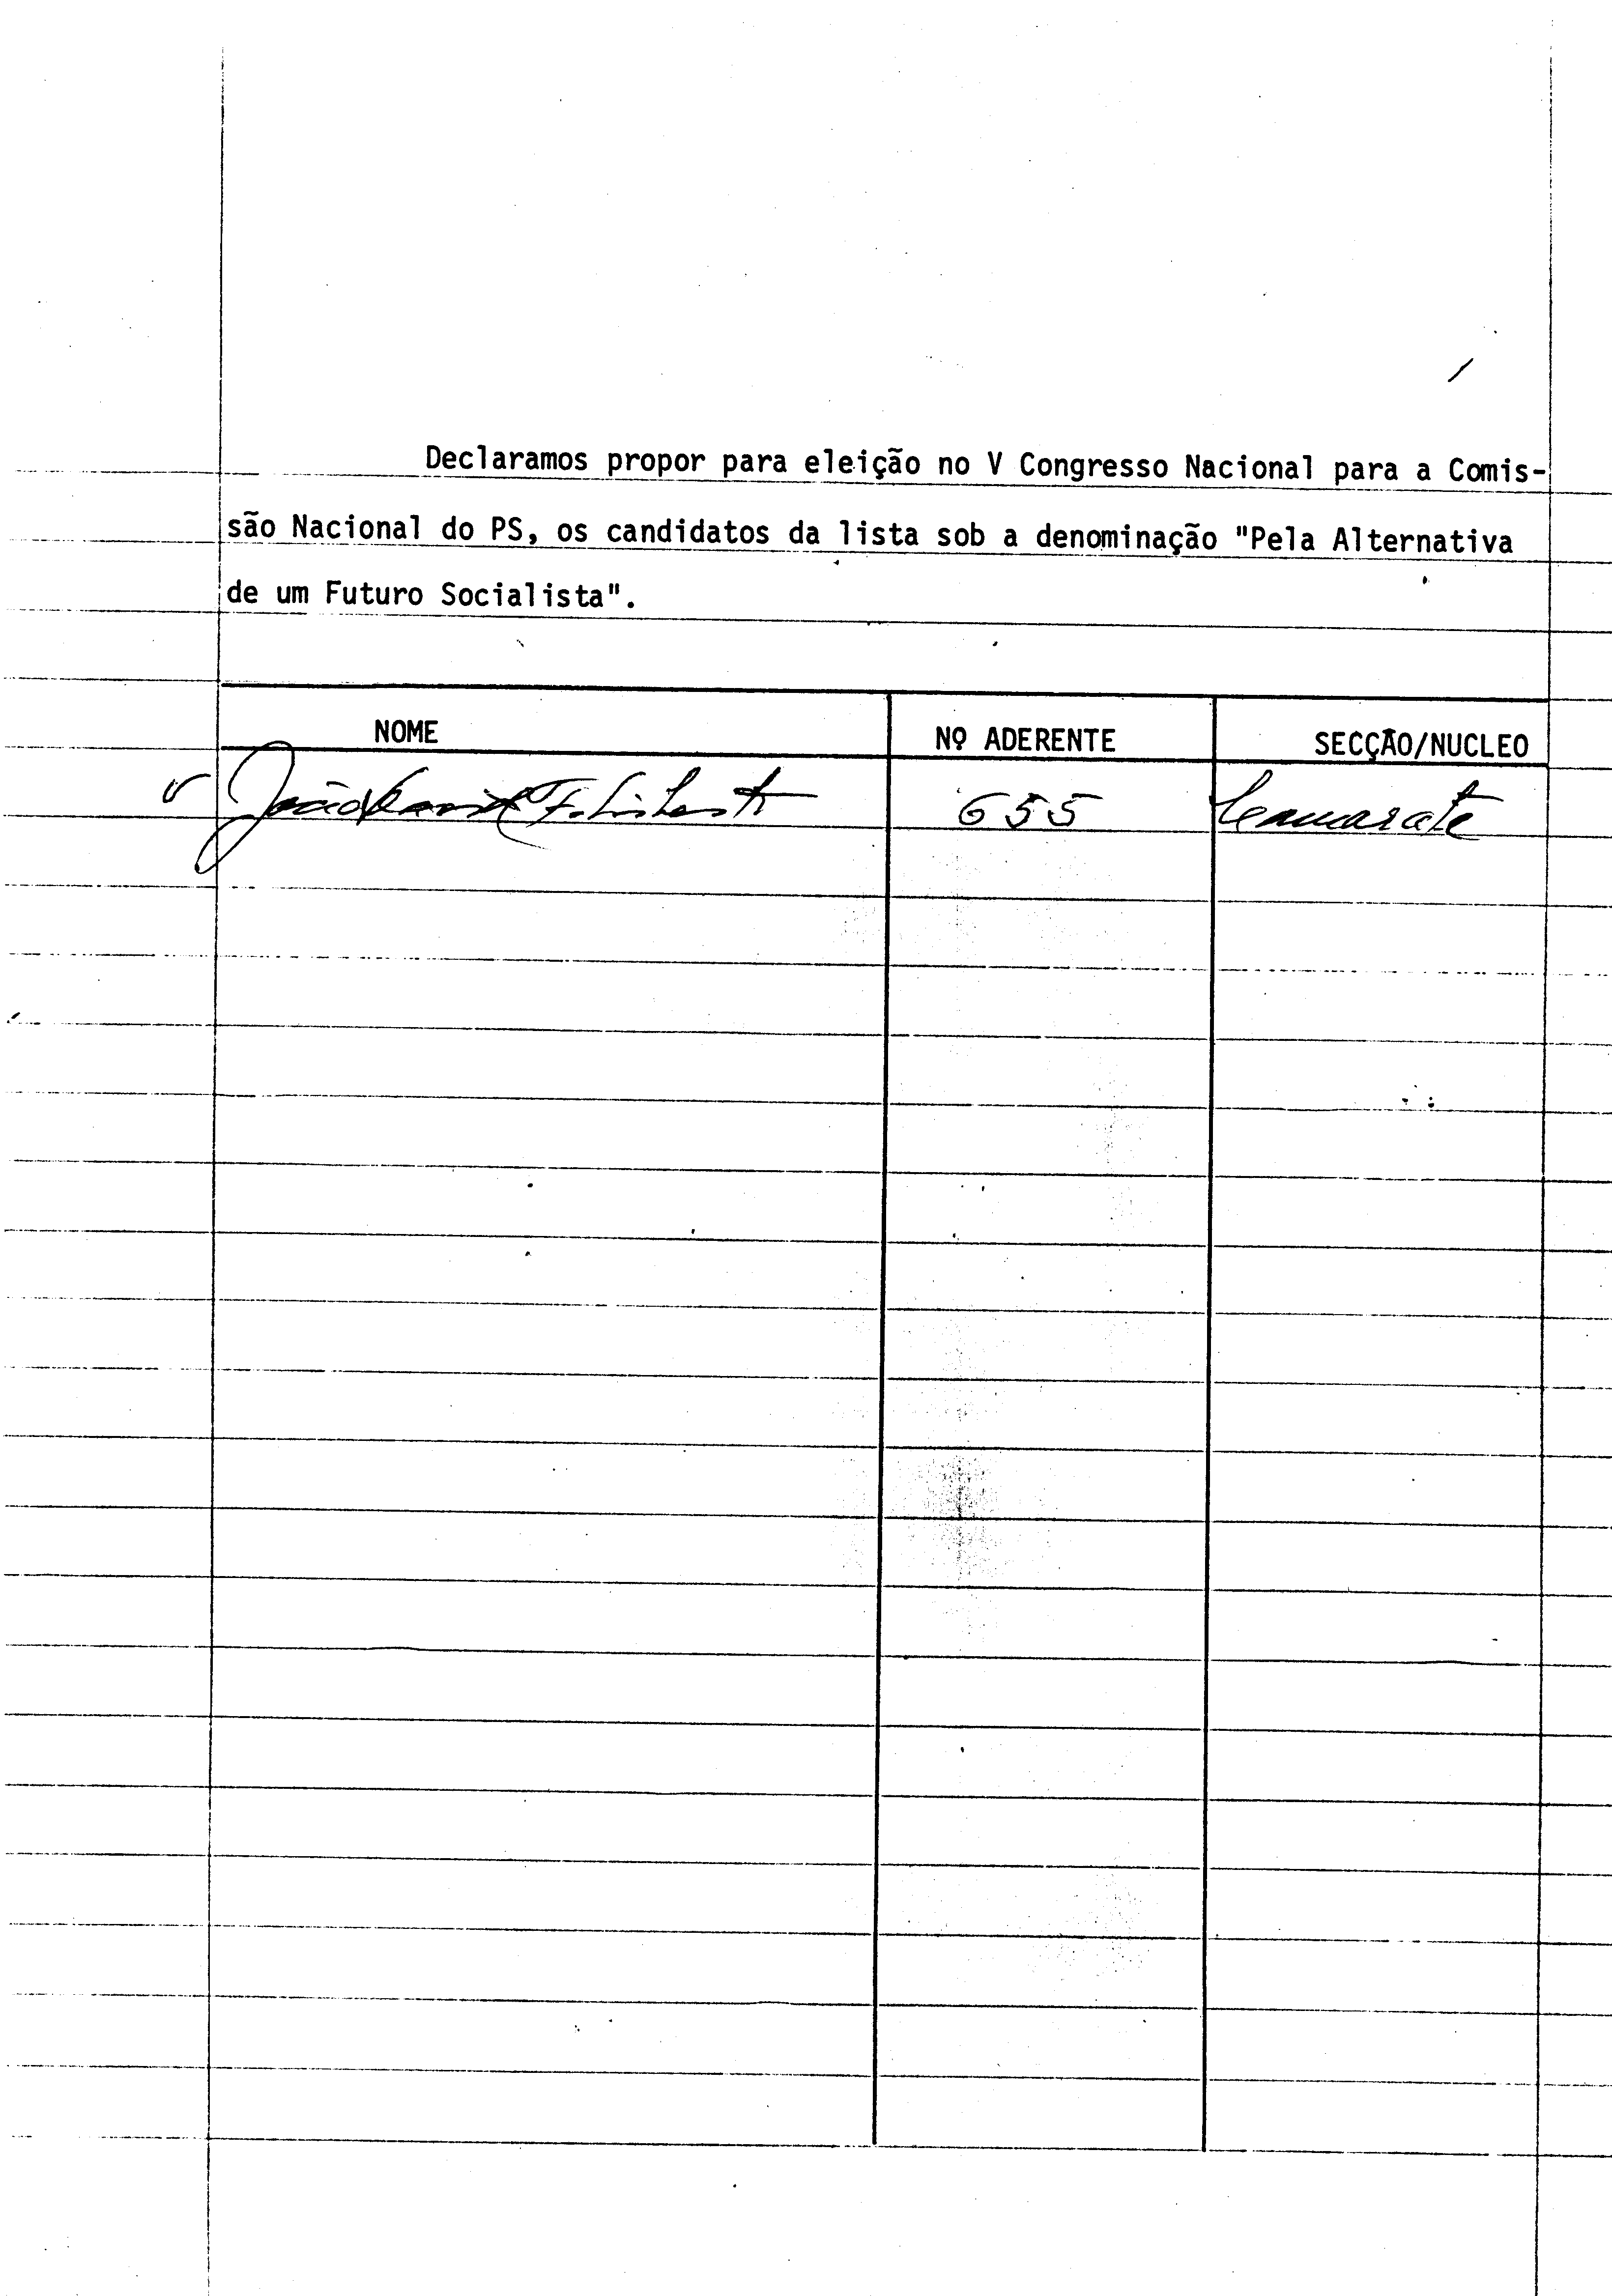 Declaramos propor para eleição no V Congresso Nacional para a Comis-
são Nacional do PS, os candidatos da lista sob a denominação "Pela Alternativa
de um Futuro Socialista".
NOME Nº ADERENTE SECÇÃO/NUCLEO
João 655 Camarate